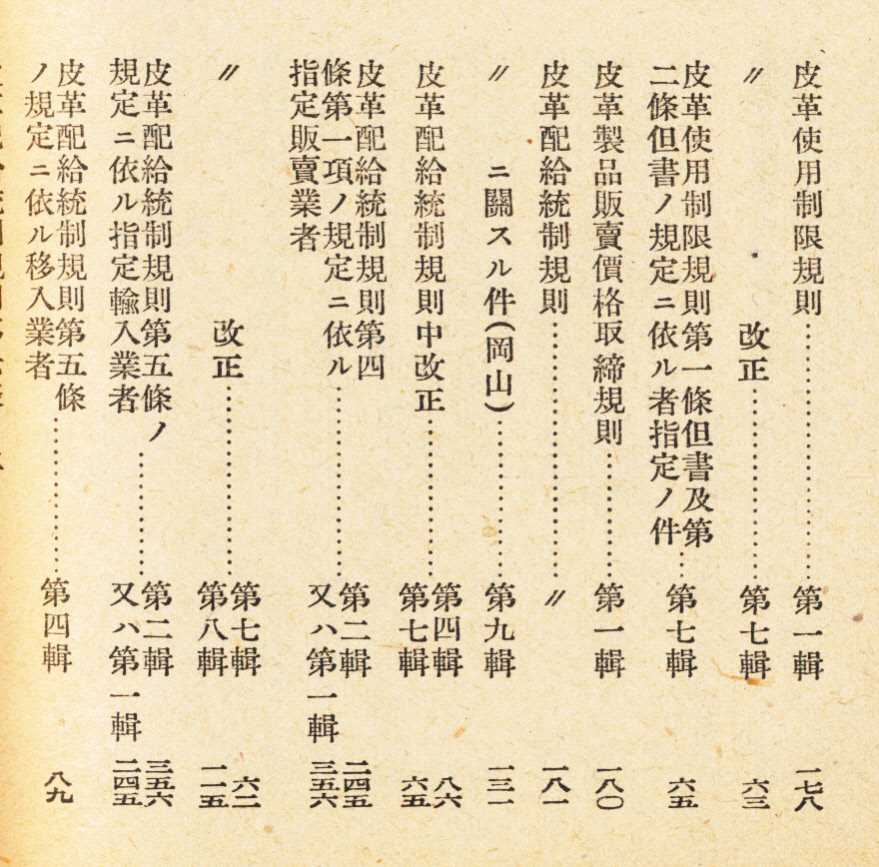 皮革使用制限規則……………………第一輯 一七八
〃 改正………………第七輯 六三
皮革使用制限規則第一條但書及第
二條但書ノ規定ニ依ル者指定ノ件…第七輯 六五
皮革製品販賣價格取締規則…………第一輯 一八〇
皮革配給統制規則……………………〃 一八一
〃 ニ關スル件(岡山)……………第九輯 一三一
皮革配給統制規則中改正……………第四輯 八六
第七輯 六五
皮革配給統制規則第四
條第一項ノ規定ニ依ル………………第二輯 二四五
指定販賣業者 又ハ第一輯 三五六
〃 改正………………第七輯 六二
第八輯 一一五
皮革配給統制規則第五條ノ…………第二輯 三五六
規定ニ依ル指定輸入業者 又ハ第一輯 二四五
皮革配給統制規則第五條
ノ規定ニ依ル移入業者………………第四輯 八九